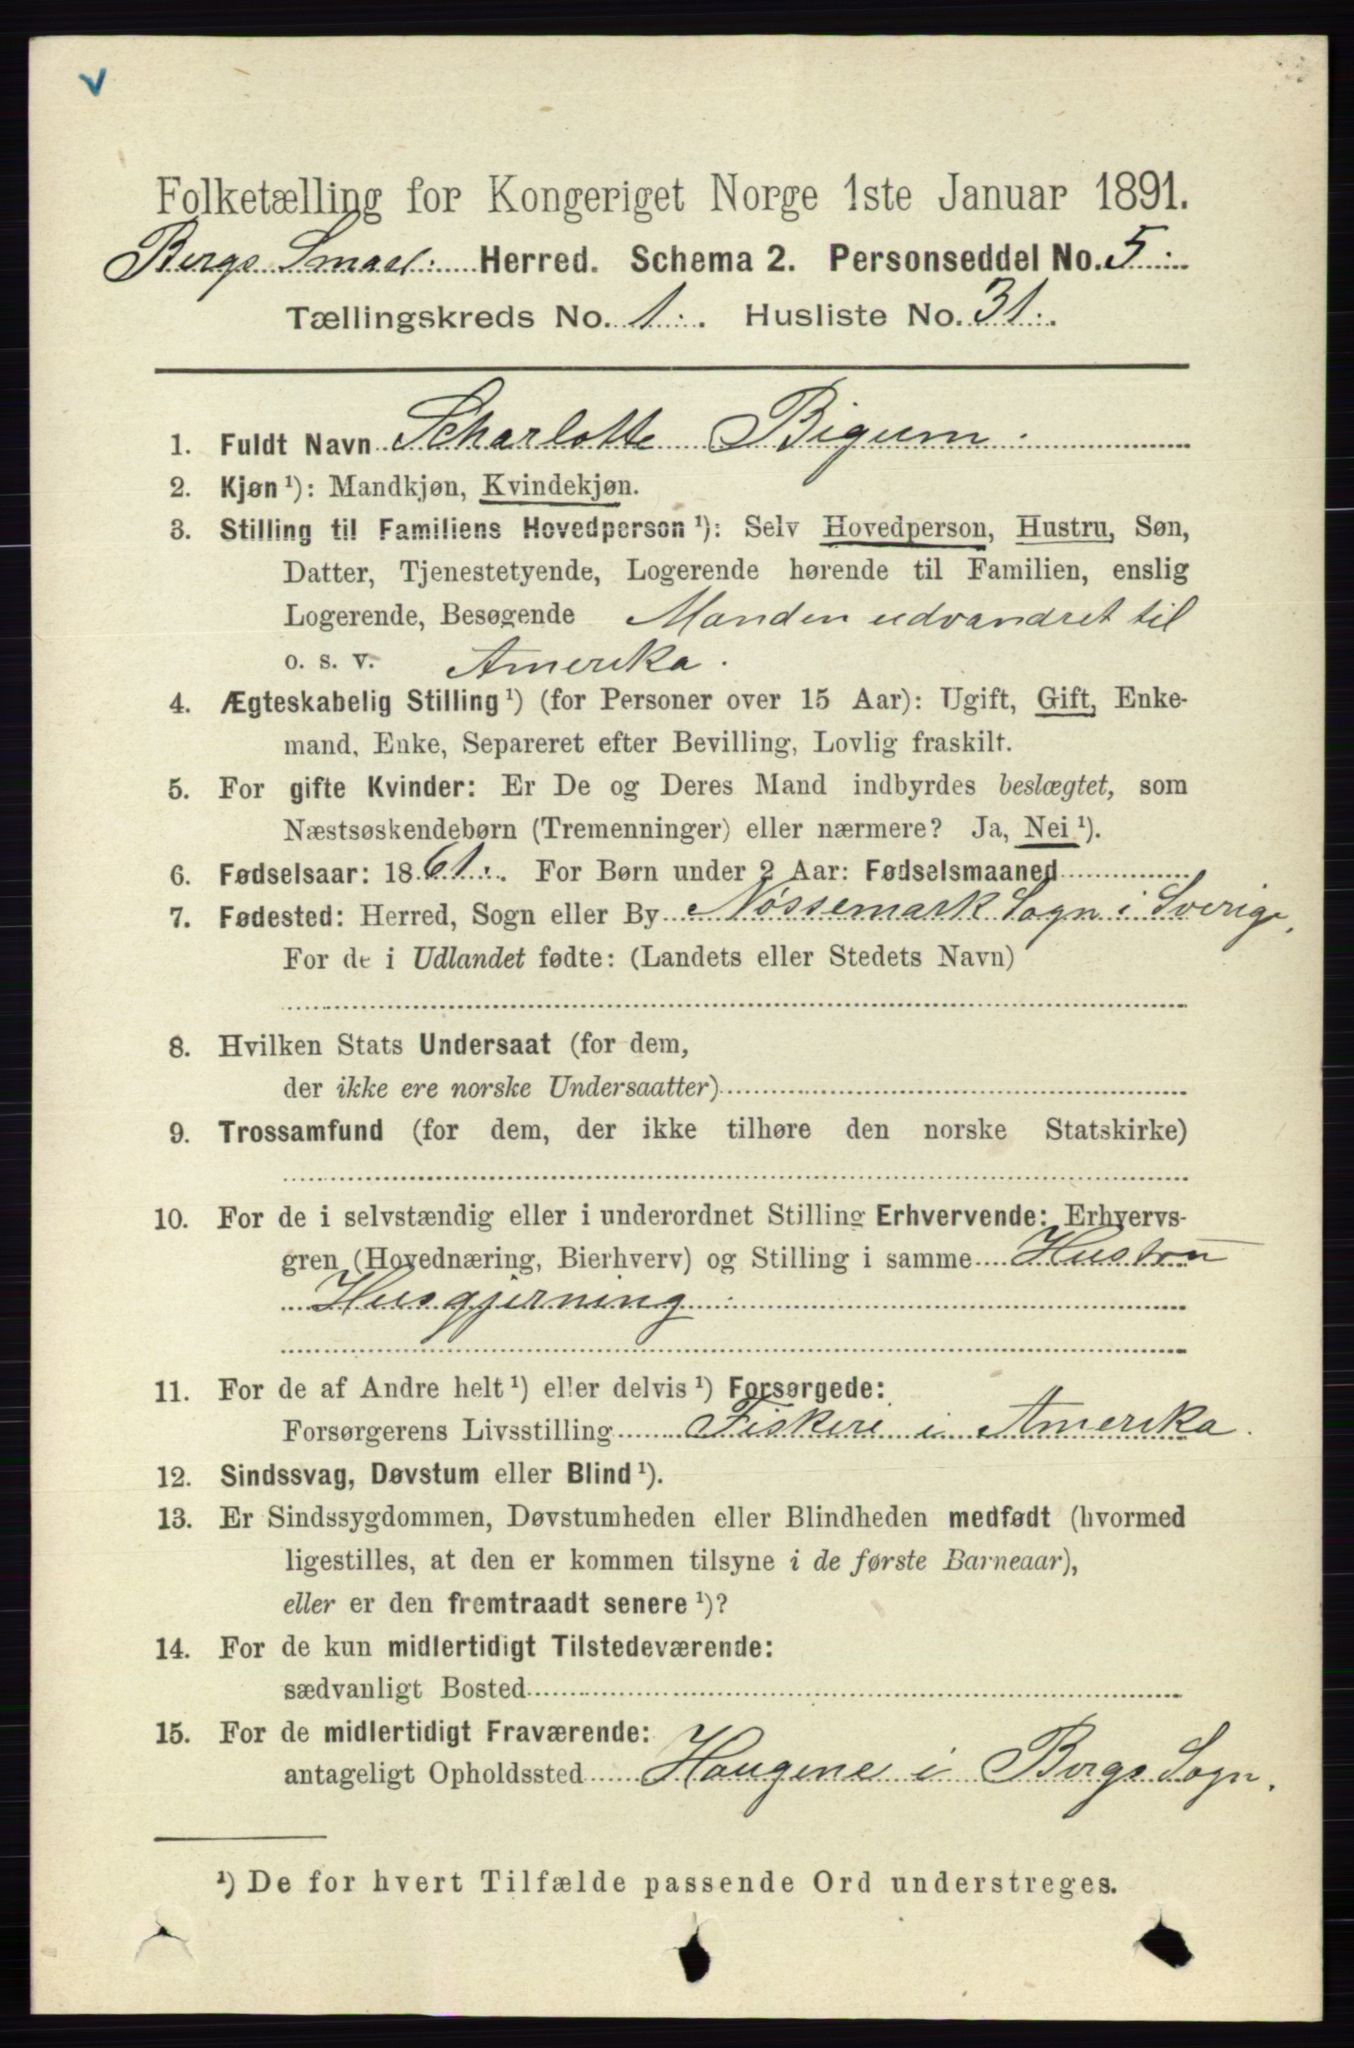 Folketælling for Kongeriget Norge 1ste Januar 1891.
Bergs Smaal: Herred. Schema 2. Personseddel No. 5
Tællingskreds No. 1. Husliste No. 31.
1. Fuldt Navn Scharlotte Bigum.
2. Kjøn ¹): Mandkjøn, Kvindekjøn.
3. Stilling til Familiens Hovedperson ¹): Selv Hovedperson, Hustru, Søn,
Datter, Tjenestetyende, Logerende hørende til Familien, enslig
Logerende, Besøgende Manden udvandret til
o. s. v. Amerika.
4. Ægteskabelig Stilling ¹) (for Personer over 15 Aar): Ugift, Gift, Enke-
mand, Enke, Separeret efter Bevilling, Lovlig fraskilt.
5. For gifte Kvinder: Er De og Deres Mand indbyrdes beslægtet, som
Næstsøskendebørn (Tremenninger) eller nærmere? Ja, Nei ¹).
6. Fødselsaar: 1861. For Børn under 2 Aar: Fødselsmaaned
7. Fødested: Herred, Sogn eller By Nössemark Sogn i Sverige.
For de i Udlandet fødte: (Landets eller Stedets Navn)
8. Hvilken Stats Undersaat (for dem,
der ikke ere norske Undersaatter)
9. Trossamfund (for dem, der ikke tilhøre den norske Statskirke)
10. For de i selvstændig eller i underordnet Stilling Erhvervende: Erhvervs-
gren (Hovednæring, Bierhverv) og Stilling i samme Hustru
Husgjerning
11. For de af Andre helt ¹) eller delvis ¹) Forsørgede:
Forsørgerens Livsstilling Fiskeri i Amerika.
12. Sindssvag, Døvstum eller Blind ¹).
13. Er Sindssygdommen, Døvstumheden eller Blindheden medfødt (hvormed
ligestilles, at den er kommen tilsyne i de første Barneaar),
eller er den fremtraadt senere ¹)?
14. For de kun midlertidigt Tilstedeværende:
sædvanligt Bosted
15. For de midlertidigt Fraværende:
antageligt Opholdssted Haugene i Bergs Sogn.
¹) De for hvert Tilfælde passende Ord understreges.